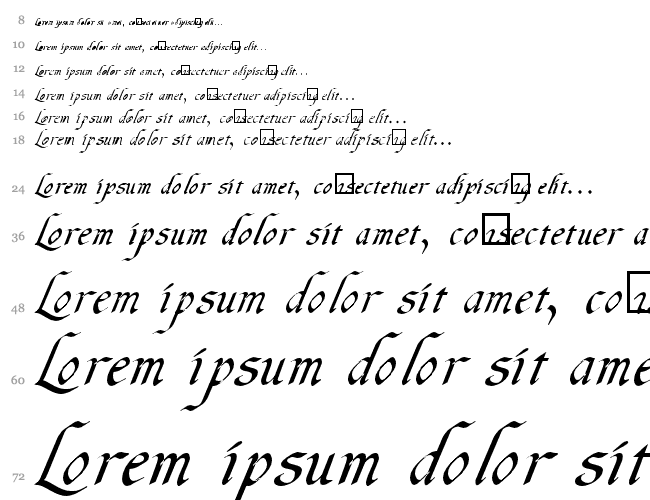 8 Lorem ipsum dolor sit amet, consectetuer adipiscing elit...
10 Lorem ipsum dolor sit amet, consectetuer adipiscing elit...
12 Lorem ipsum dolor sit amet, consectetuer adipiscing elit...
14 Lorem ipsum dolor sit amet, consectetuer adipiscing elit...
16 Lorem ipsum dolor sit amet, consectetuer adipiscing elit...
18 Lorem ipsum dolor sit amet, consectetuer adipiscing elit...
24 Lorem ipsum dolor sit amet, consectetuer adipiscing elit...
36 Lorem ipsum dolor sit amet, consectetuer a
48 Lorem ipsum dolor sit amet, co
60 Lorem ipsum dolor sit ame
72 Lorem ipsum dolor sit